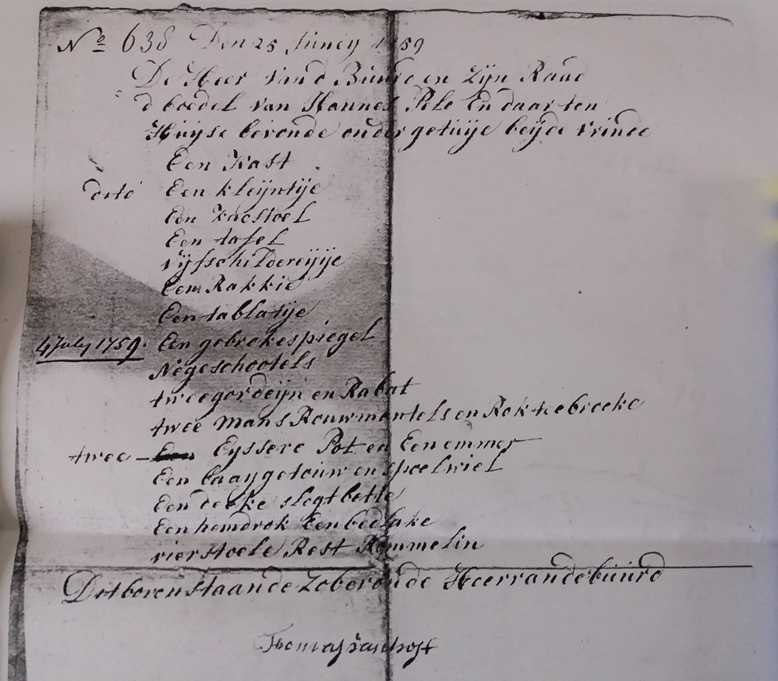 No 638 Den 25 Juney 1759
De Heer van d Buure en Zijn Raad
d boedel van Hannes Pele En daar ten
Huyse bevonde onder getuije beyde vrinde
Een Kast
dito Een kleyntije
Een kacstoel
Een tafel
vyfschildereyije
Een Rakkie
Een tablatije
4 July 1759. Een gebrokespiegel
Negeschootels
tweegordeijn en Rabat
twee mans Rouwmantels en Rok + ebroeke
twee Eyssere Pot en Een emmer
Een baaygetouw en spoelwiel
Een deeke slegt bette
Een hemdrok Een bedlake
vier stoele Rest Rommelin
Dat bovenstaande Zobevonde Heer vandebuurd